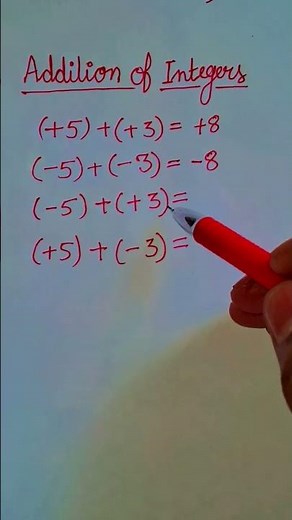 Addition of Integers
(+5)+(+3)= +8
(-5)+(-3)= -8
(-5)+(+3)=
(+5)+(-3)=